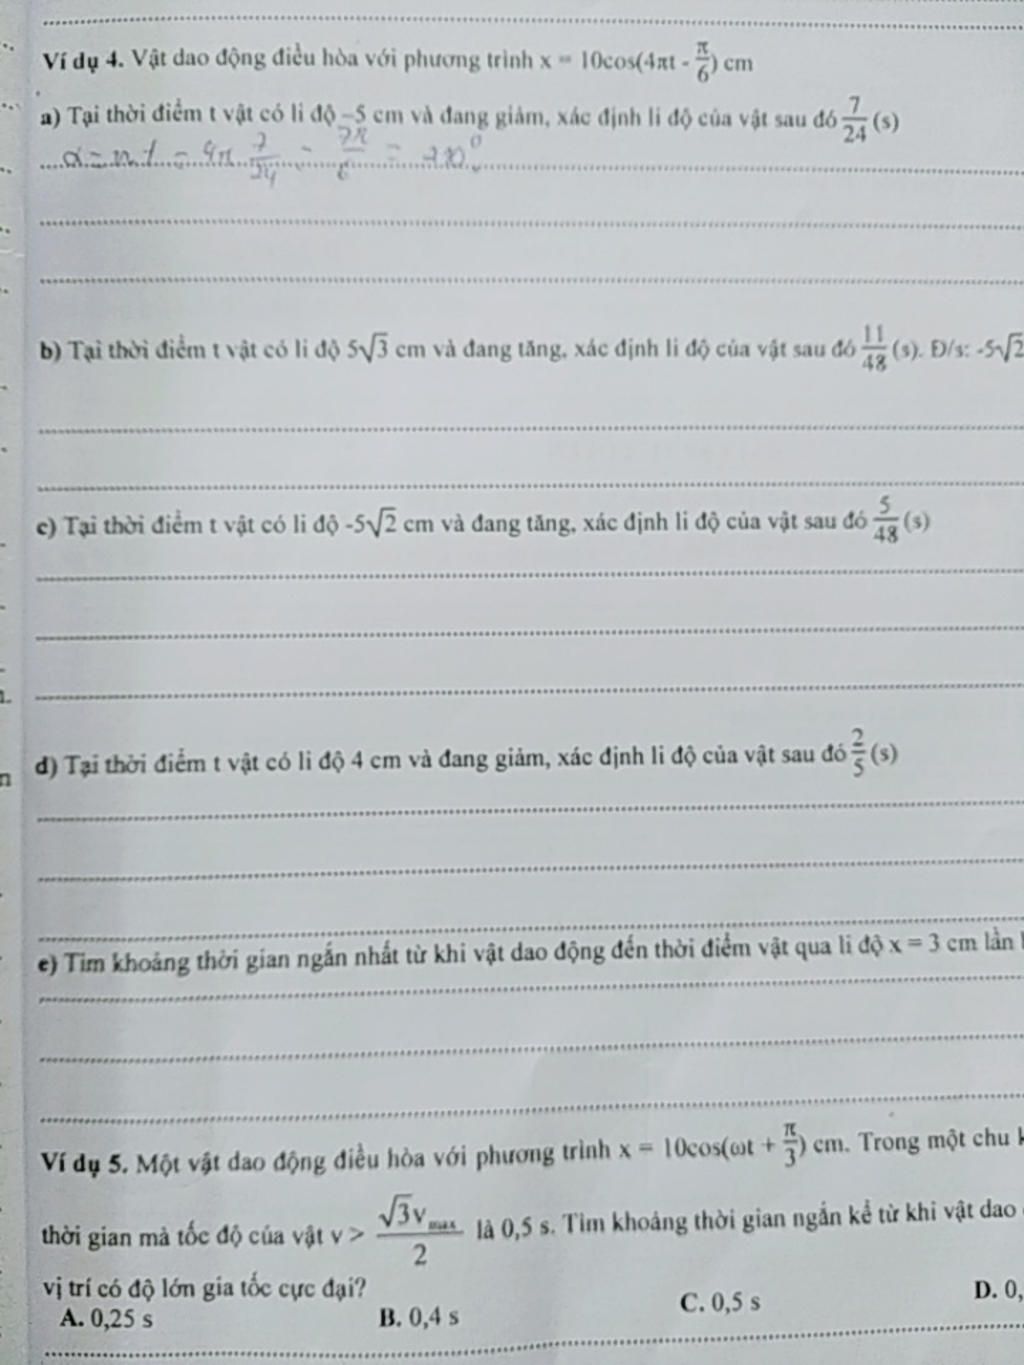 Ví dụ 4. Vật dao động điều hòa với phương trình x = 10cos(4πt - π/6) cm
a) Tại thời điểm t vật có li độ –5 cm và đang giảm, xác định li độ của vật sau đó 7/24 (s)
α = ω.t = 4π. 7/24 = 7π/6 = 210°
b) Tại thời điểm t vật có li độ 5√3 cm và đang tăng, xác định li độ của vật sau đó 11/48 (s). Đ/s: -5√2
c) Tại thời điểm t vật có li độ -5√2 cm và đang tăng, xác định li độ của vật sau đó 5/48 (s)
d) Tại thời điểm t vật có li độ 4 cm và đang giảm, xác định li độ của vật sau đó 2/5 (s)
e) Tìm khoảng thời gian ngắn nhất từ khi vật dao động đến thời điểm vật qua li độ x = 3 cm lần
Ví dụ 5. Một vật dao động điều hòa với phương trình x = 10cos(ωt + π/3) cm. Trong một chu
thời gian mà tốc độ của vật v > √3v_max/2 là 0,5 s. Tìm khoảng thời gian ngắn kể từ khi vật dao
vị trí có độ lớn gia tốc cực đại?
A. 0,25 s B. 0,4 s C. 0,5 s D. 0,